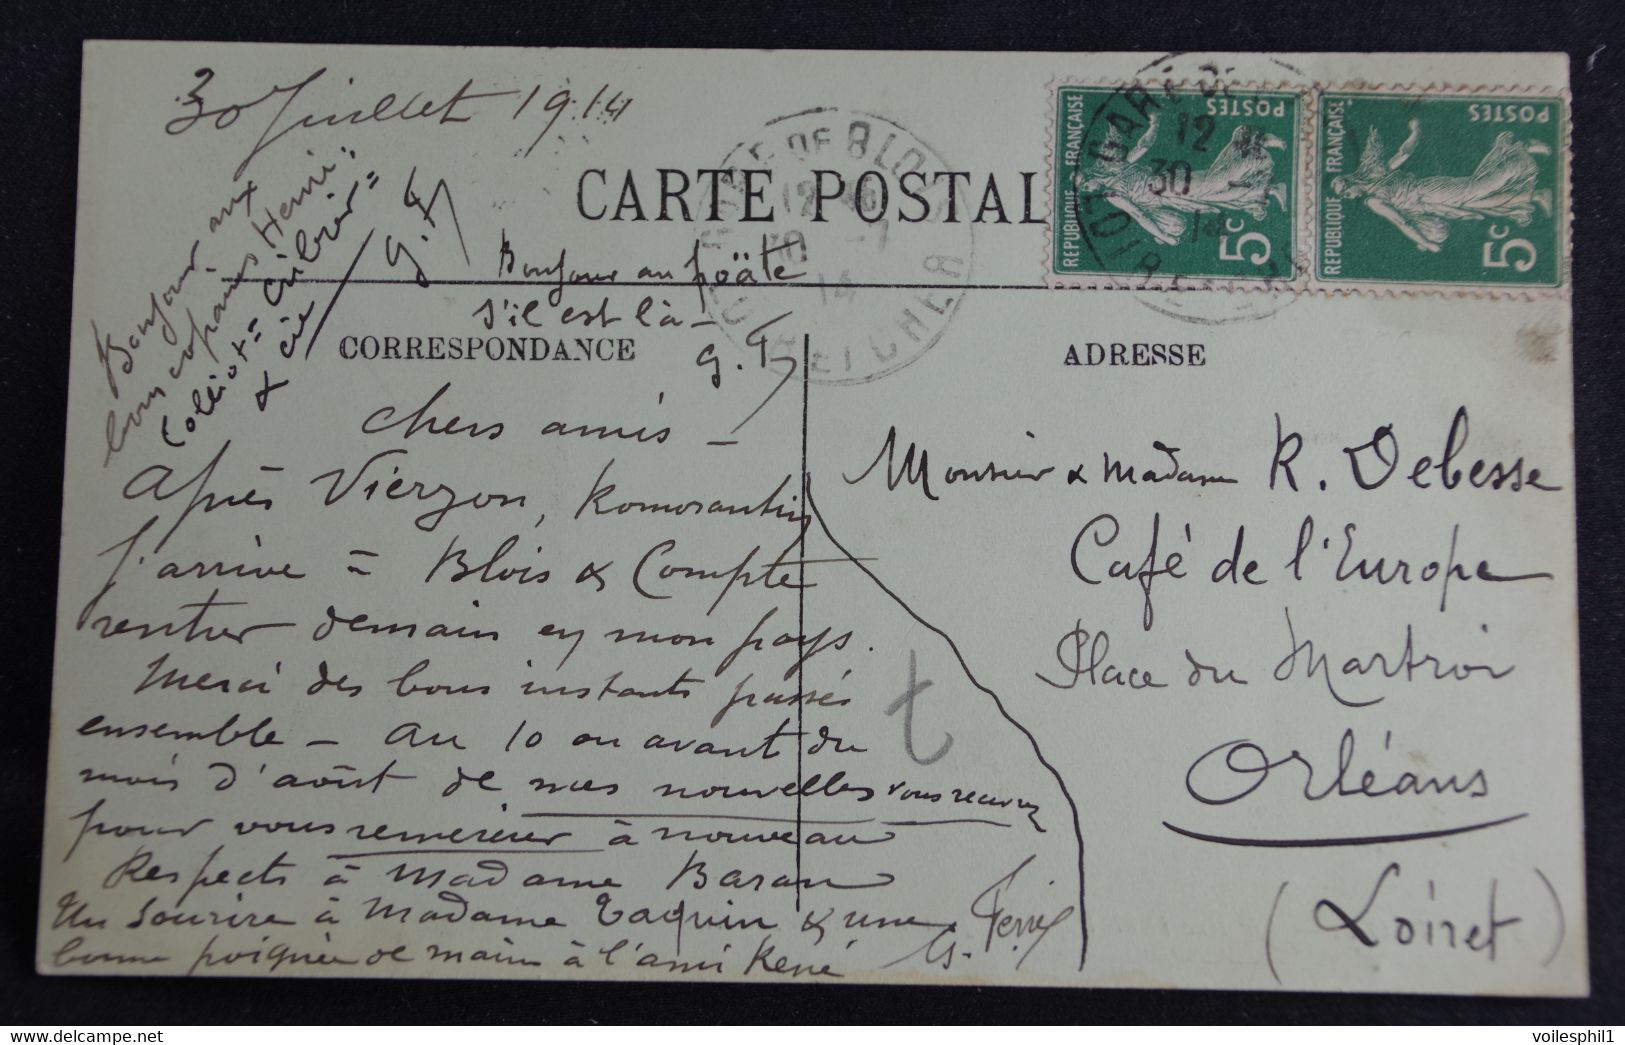 30 Juillet 1914
Bonjour aux
bons copains Henri,
& Cie
G. F
CARTE POSTALE
GARE DE BLOIS
12
30 -7
14
LOIR-ET-CHER
GARE DE
12
30 -7
14
LOIR-ET-CHER
REPUBLIQUE FRANÇAISE
POSTES
5c
REPUBLIQUE FRANÇAISE
POSTES
5c
Bonjour au poäte
s'il est là -
G. F
CORRESPONDANCE
ADRESSE
Chers amis -
Après Vierzon, Romorantin
j'arrive à Blois & Compte
rentrer demain en mon pays.
Merci des bons instants passés
ensemble - au 10 ou avant du
mois d'août de mes nouvelles vous recevrez
pour vous remercier à nouveau
Respects à Madame Baran
Un sourire à Madame Taquin & une
bonne poignée de main à l'ami René
G.
t
Monsieur & Madame R. Debesse
Café de l'Europe
Place du Martroi
Orléans
(Loiret)
voilesphil1